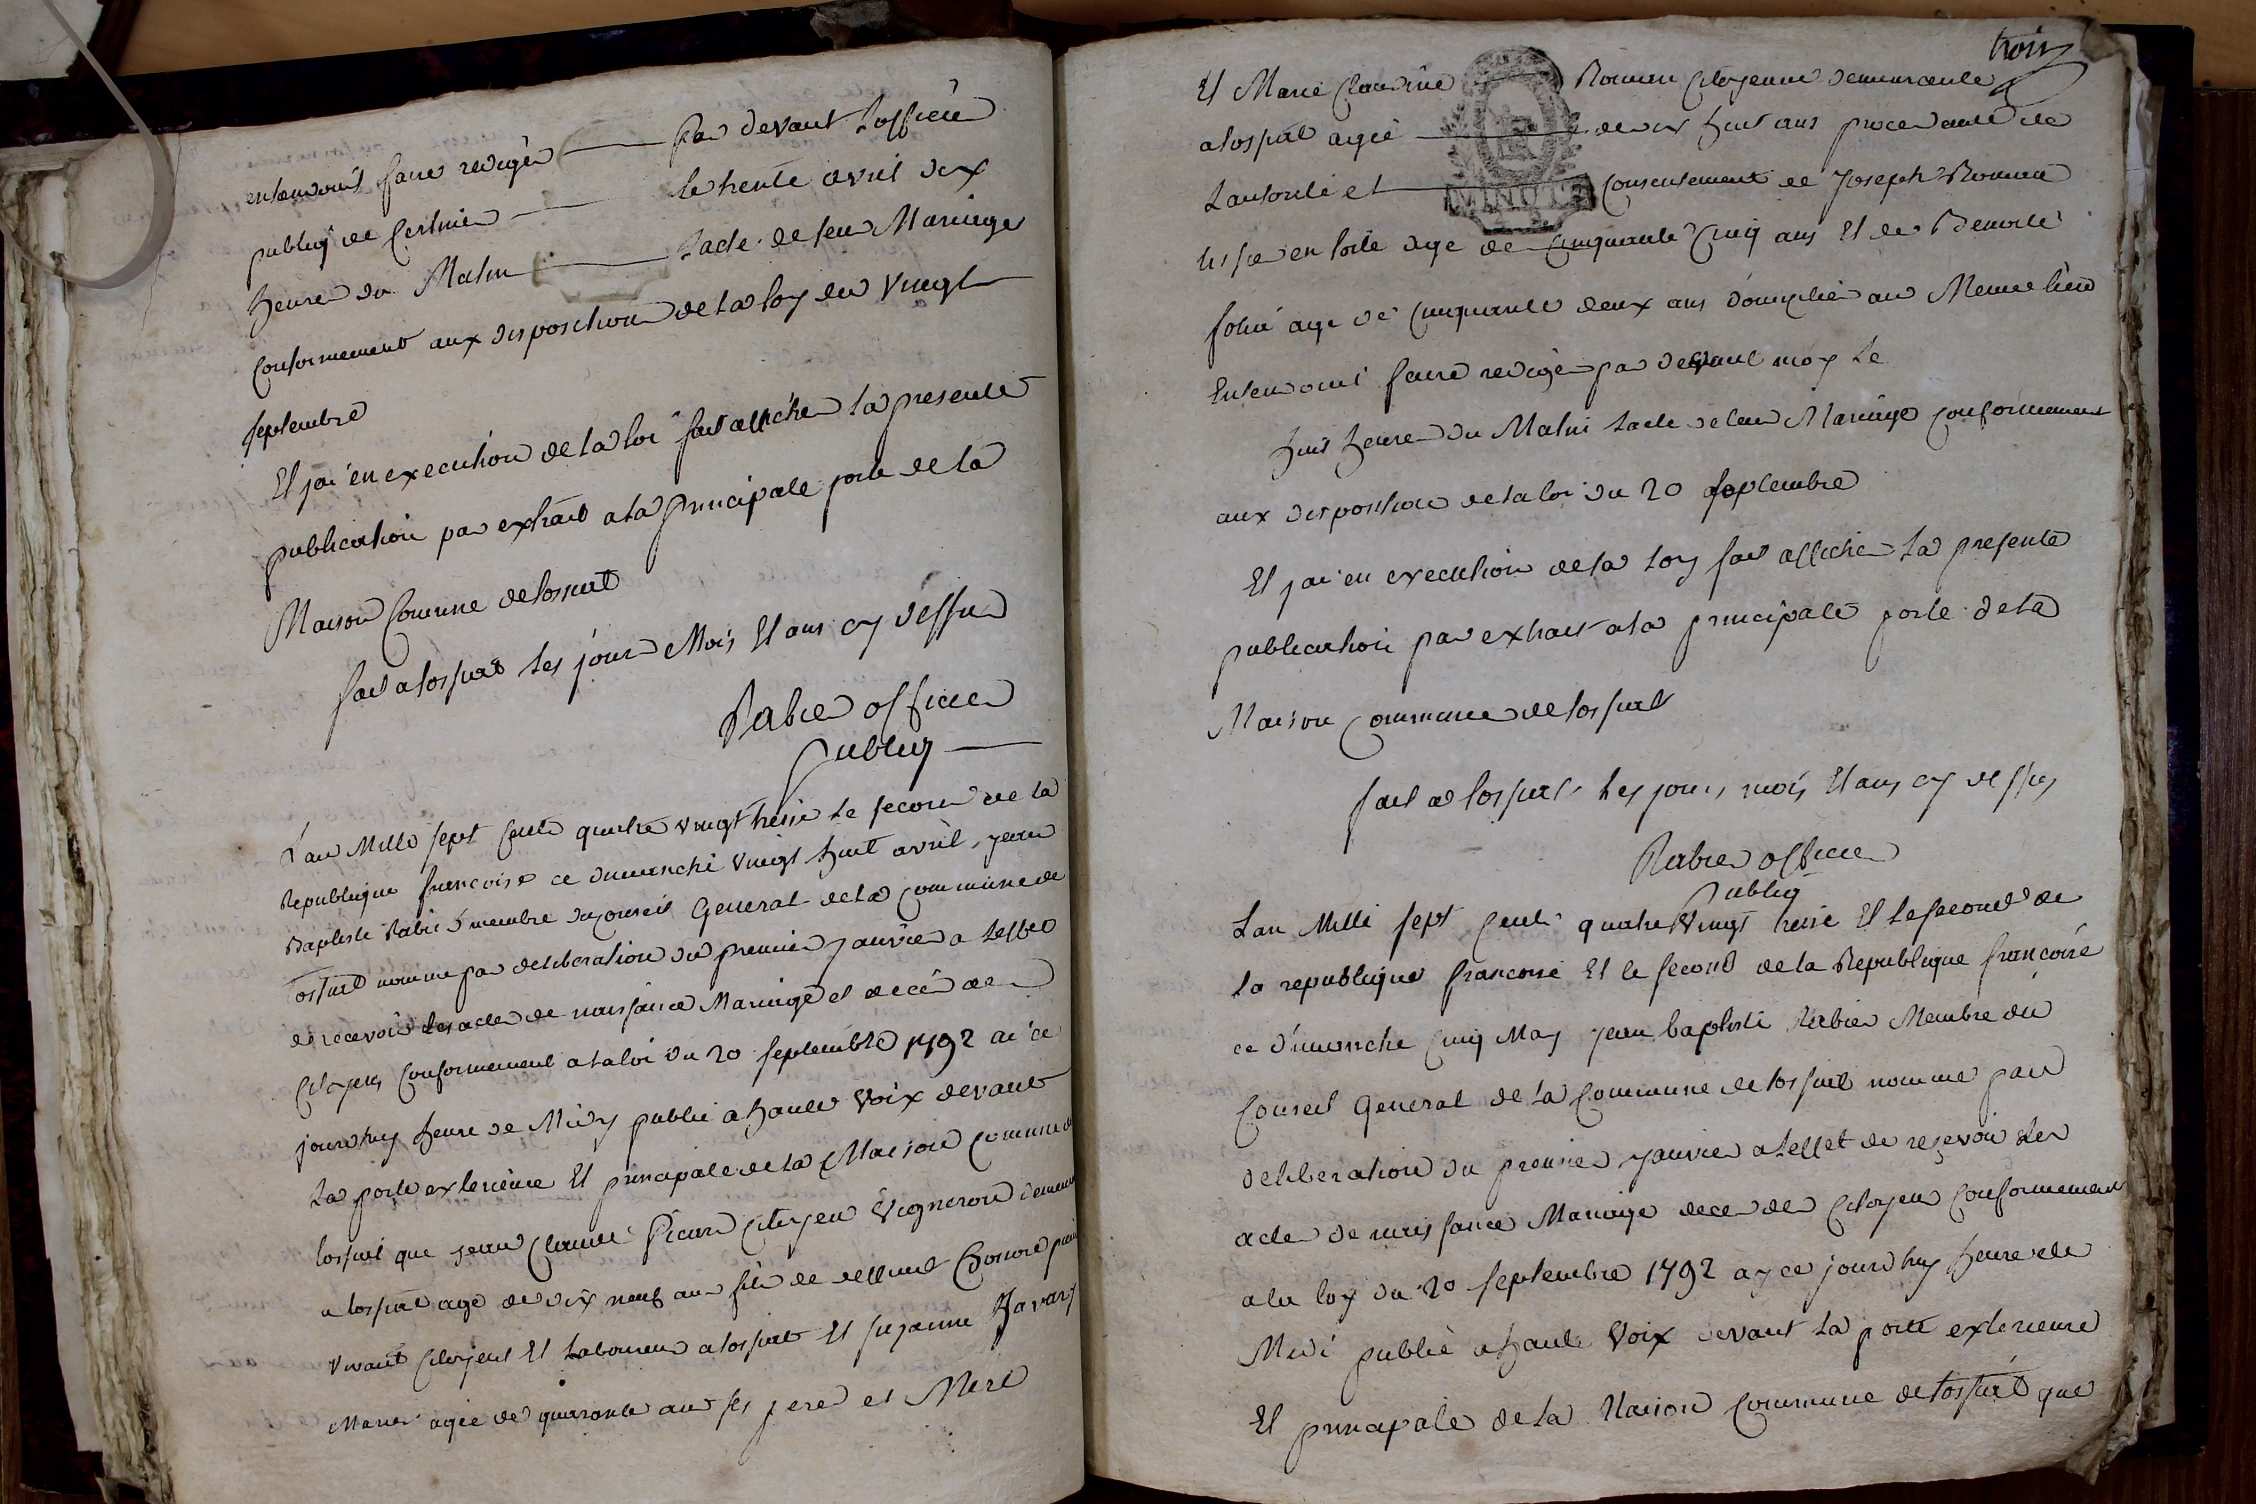 entendons faire rediger par devant Lofficier
publiq de Cerfnier le trente avril dix
heure du Matin Lacte de leur Mariage
Conformement aux disposition de la loy du vingt
septembre
Et jai en execution de la loi fait afficher la presente
publication par extrait a la principale porte de la
Maison Comune de losnat
fait a losnat les jour Mois Et ans cy dessus
Rabier officier
publiq
Lan Mille sept cents quatre vingt treise le second de la
Republique francoise ce dimanche vingt huit avril, jean
Baptiste Rabier membre du Conseil General de la commune de
nomme par deliberation du premier janvier a leffet
de recevoir les actes de naissance Mariage et deces des
Citoyens Conformement a la loi du 20 septembre 1792 ai ce
jourdhuy heure de Midy publie a haute voix devant
la porte exterieure Et principale de la Maison Comune de
que jean Claude Picard Citoyen Vigneron
a age de dix neuf ans fils de deffunt
vivant Citoyen Et Laboureur a Et suzanne
agée de quarante ans ses pere et Mere
trois
Et Marie Claudine Citoyenne demeurante
a agée de dix huit ans procedante de
Lautorité et Consentement de Joseph
age de Cinquante Cinq ans Et de Benoite
age de Cinquante deux ans domicilié au Meme lieu
Entendons faire rediger par devant moy le
huit heure du Matin Lacte de leur Mariage conformement
aux disposition de la loi du 20 septembre
Et jai en execution de la loy fait afficher la presente
publication par extrait a la principale porte de la
Maison Commune de
fait a les jours mois Et ans cy dessus
Rabier officier
publiq
Lan Mille sept cents quatre vingt treise Et le second de
la republique francoise Et le second de la Republique francoise
ce dimanche Cinq May jean baptiste Rabier Membre du
Conseil General de la Commune de nomme par
deliberation du premier janvier a leffet de recevoir les
actes de naissance Mariage deces des Citoyens Conformement
a la loy du 20 septembre 1792 ay ce jourdhuy heure de
Midi publié a haute Voix devant la porte exterieure
Et principale de la Maison Commune de que
MINUTE